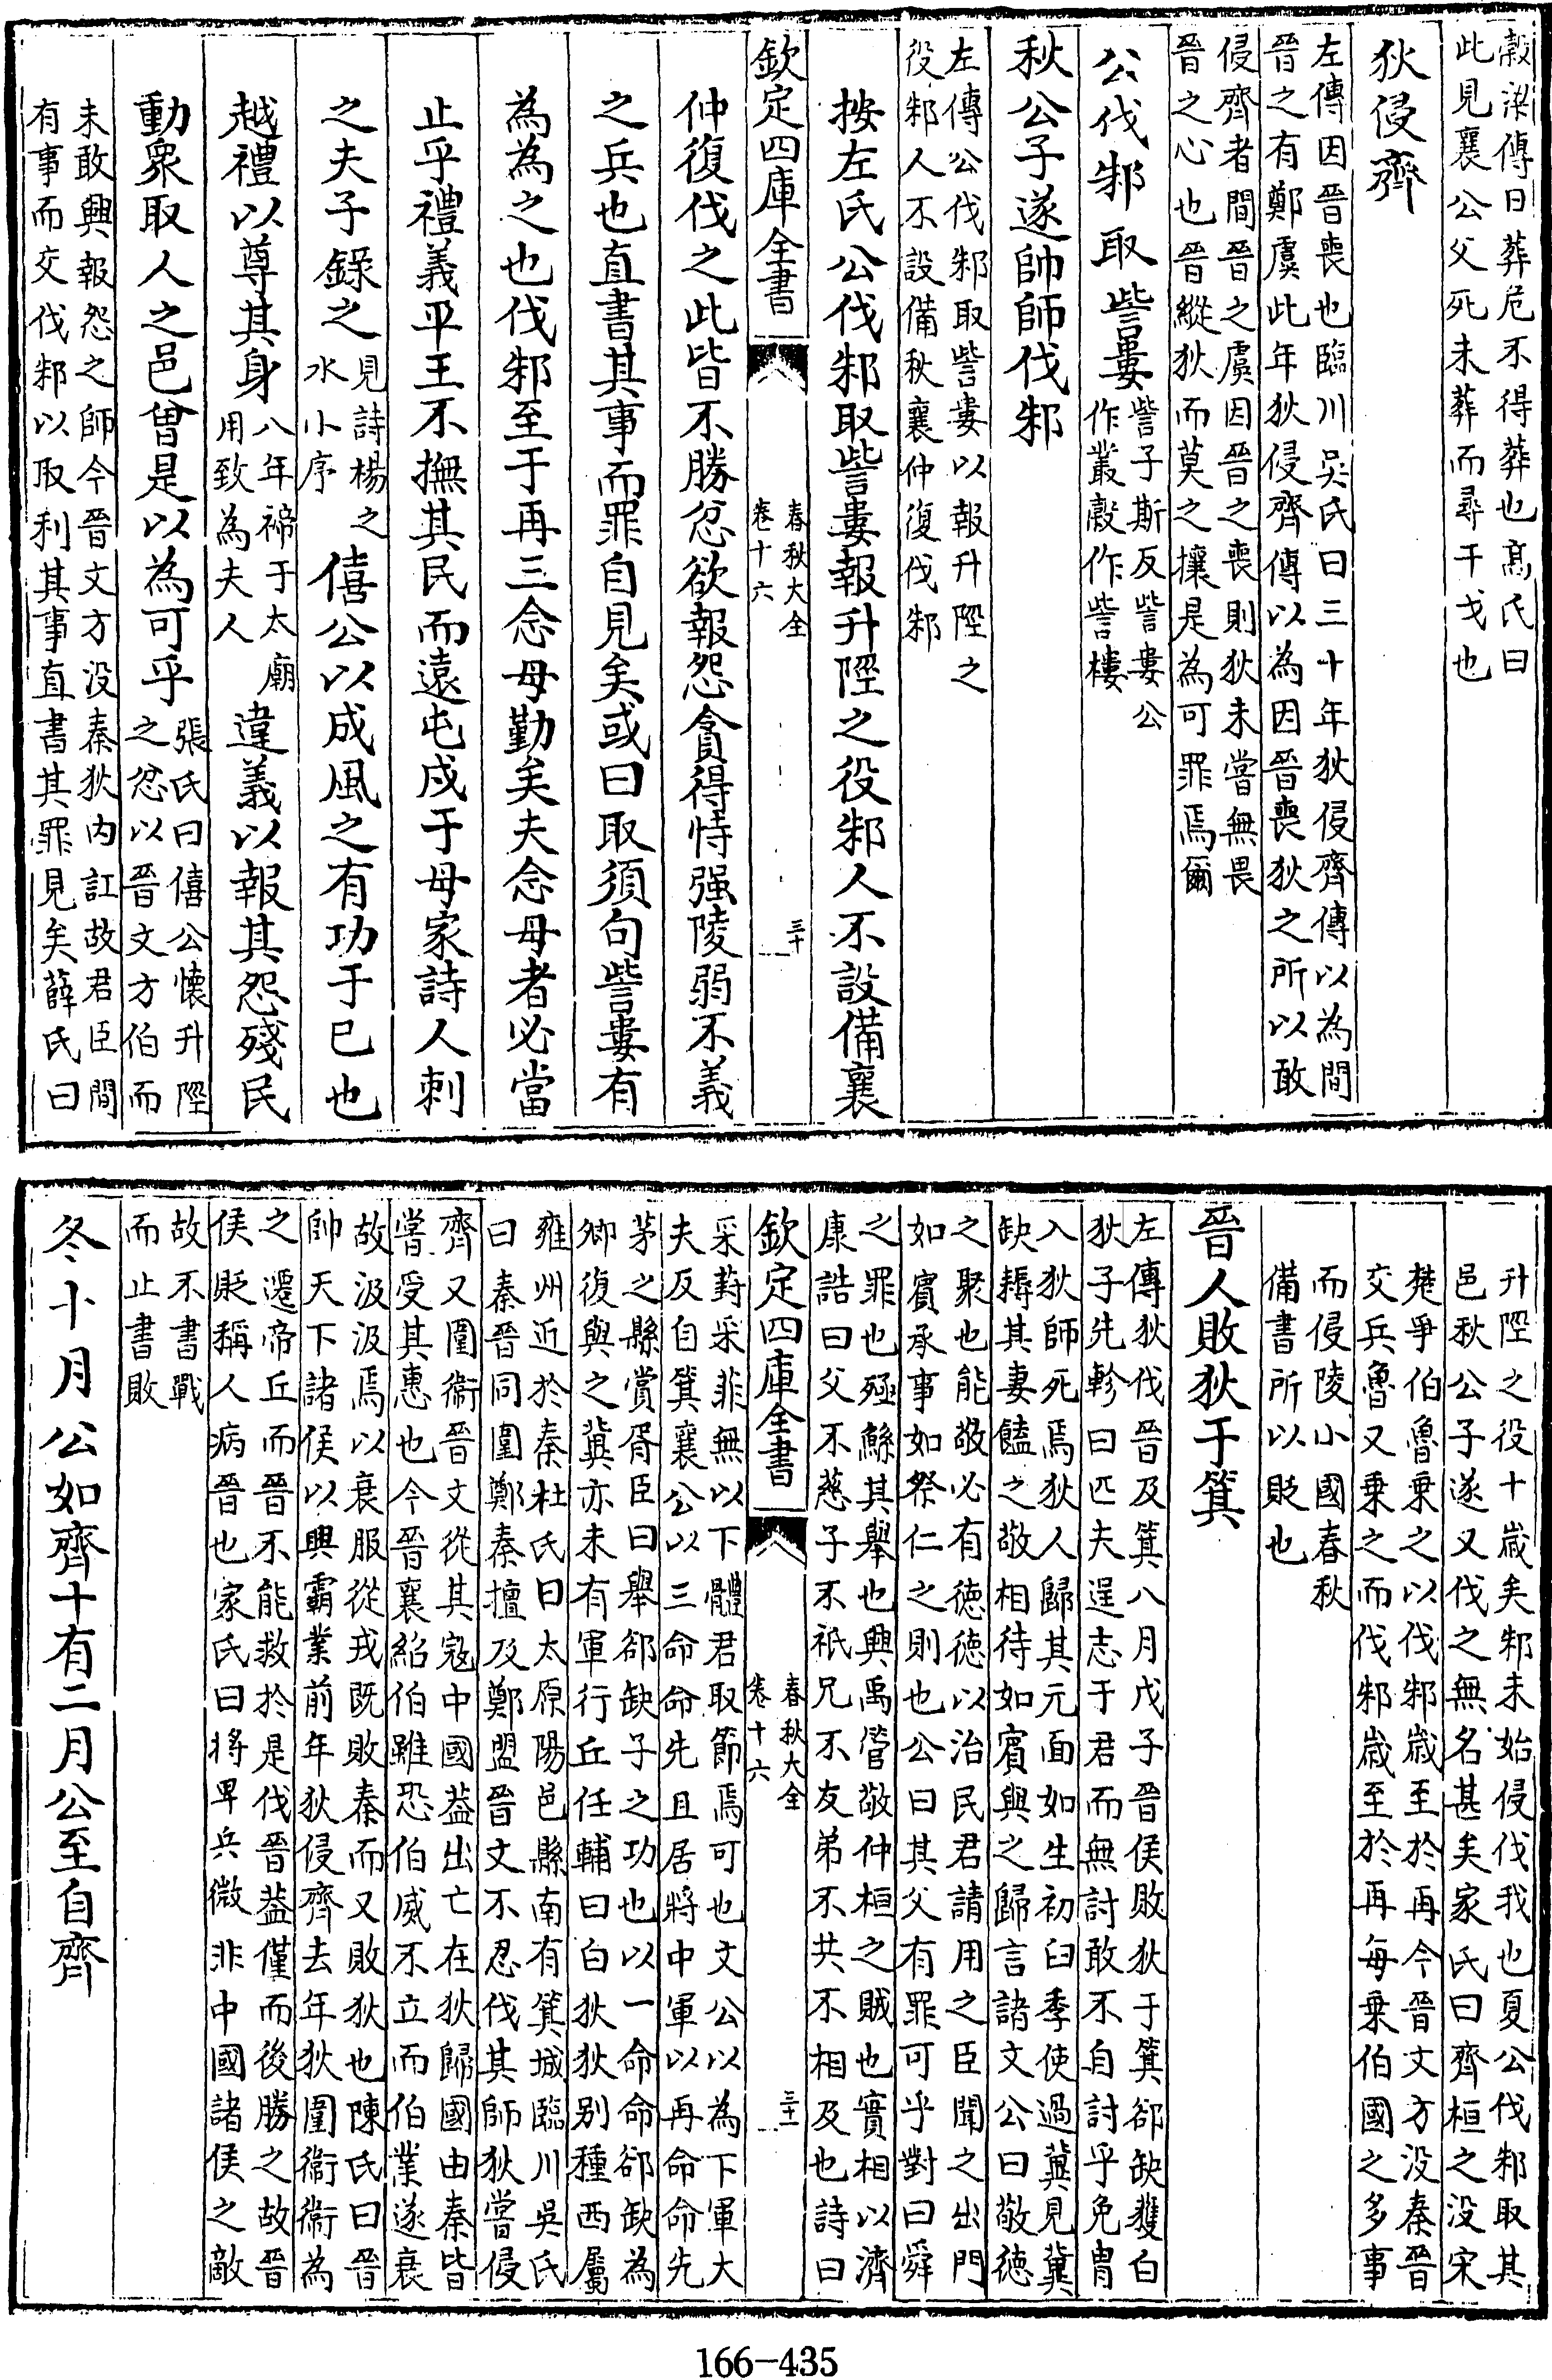 榖梁傳曰葬危不得葬也髙氏曰
此見襄公父死未葬而尋干戈也
狄侵齊
左傳因晉喪也臨川吳氏曰三十年狄侵齊傳以為間
晉之有鄭虞此年狄侵齊傳以為因晉喪狄之所以敢
侵齊者間晉之虞因晉之喪則狄未嘗無畏
晉之心也晉縱狄而莫之攘是為可罪焉爾
公伐邾取訾婁訾子斯反訾婁公
作叢榖作訾樓
秋公子遂帥師伐邾
左傳公伐邾取訾婁以報升陘之
役邾人不設備秋襄仲復伐邾
按左氏公伐邾取訾婁報升陘之役邾人不設備襄
欽定四庫全書 春秋大全 卷十六 三十
仲復伐之此皆不勝忿欲報怨貪得恃强陵弱不義
之兵也直書其事而罪自見矣或曰取須句訾婁有
為為之也伐邾至于再三念母勤矣夫念母者必當
止乎禮義平王不撫其民而遠屯戍于母家詩人刺
之夫子錄之見詩楊之水小序僖公以成風之有功于已也
越禮以尊其身八年禘于太廟用致為夫人違義以報其怨殘民
動衆取人之邑曾是以為可乎張氏曰僖公懷升陘
之忿以晉文方伯而
未敢興報怨之師今晉文方没秦狄内訌故君臣間
有事而交伐邾以取利其事直書其罪見矣薛氏曰
升陘之役十嵗矣邾未始侵伐我也夏公伐邾取其
邑秋公子遂又伐之無名甚矣家氏曰齊桓之没宋
楚爭伯魯乗之以伐邾嵗至於再今晉文方没秦晉
交兵魯又乗之而伐邾嵗至於再每乗伯國之多事
而侵陵小國春秋
備書所以貶也
晉人敗狄于箕
左傳狄伐晉及箕八月戊子晉侯敗狄于箕郤缺獲白
狄子先軫曰匹夫逞志于君而無討敢不自討乎免胄
入狄師死焉狄人歸其元面如生初臼季使過冀見冀
缺耨其妻饁之敬相待如賓與之歸言諸文公曰敬徳
之聚也能敬必有徳徳以治民君請用之臣聞之出門
如賓承事如祭仁之則也公曰其父有罪可乎對曰舜
之罪也殛鯀其舉也興禹管敬仲桓之賊也實相以濟
康誥曰父不慈子不祇兄不友弟不共不相及也詩曰
欽定四庫全書 春秋大全 卷十六 三十一
采葑采菲無以下體君取節焉可也文公以為下軍大
夫反自箕襄公以三命命先且居將中軍以再命命先
茅之縣賞胥臣曰舉郤缺子之功也以一命命郤缺為
卿復與之冀亦未有軍行丘任輔曰白狄狄别種西屬
雍州近於秦杜氏曰太原陽邑縣南有箕城臨川吳氏
曰秦晉同圍鄭秦擅及鄭盟晉文不忍伐其師狄嘗侵
齊又圍衞晉文從其寇中國葢出亡在狄歸國由秦皆
嘗受其惠也今晉襄紹伯雖恐伯威不立而伯業遂衰
故汲汲焉以衰服從戎既敗秦而又敗狄也陳氏曰晉
帥天下諸侯以興霸業前年狄侵齊去年狄圍衞衞為
之遷帝丘而晉不能救於是伐晉葢僅而後勝之故晉
侯貶稱人病晉也家氏曰將卑兵微非中國諸侯之敵
故不書戰
而止書敗
冬十月公如齊十有二月公至自齊
166-435